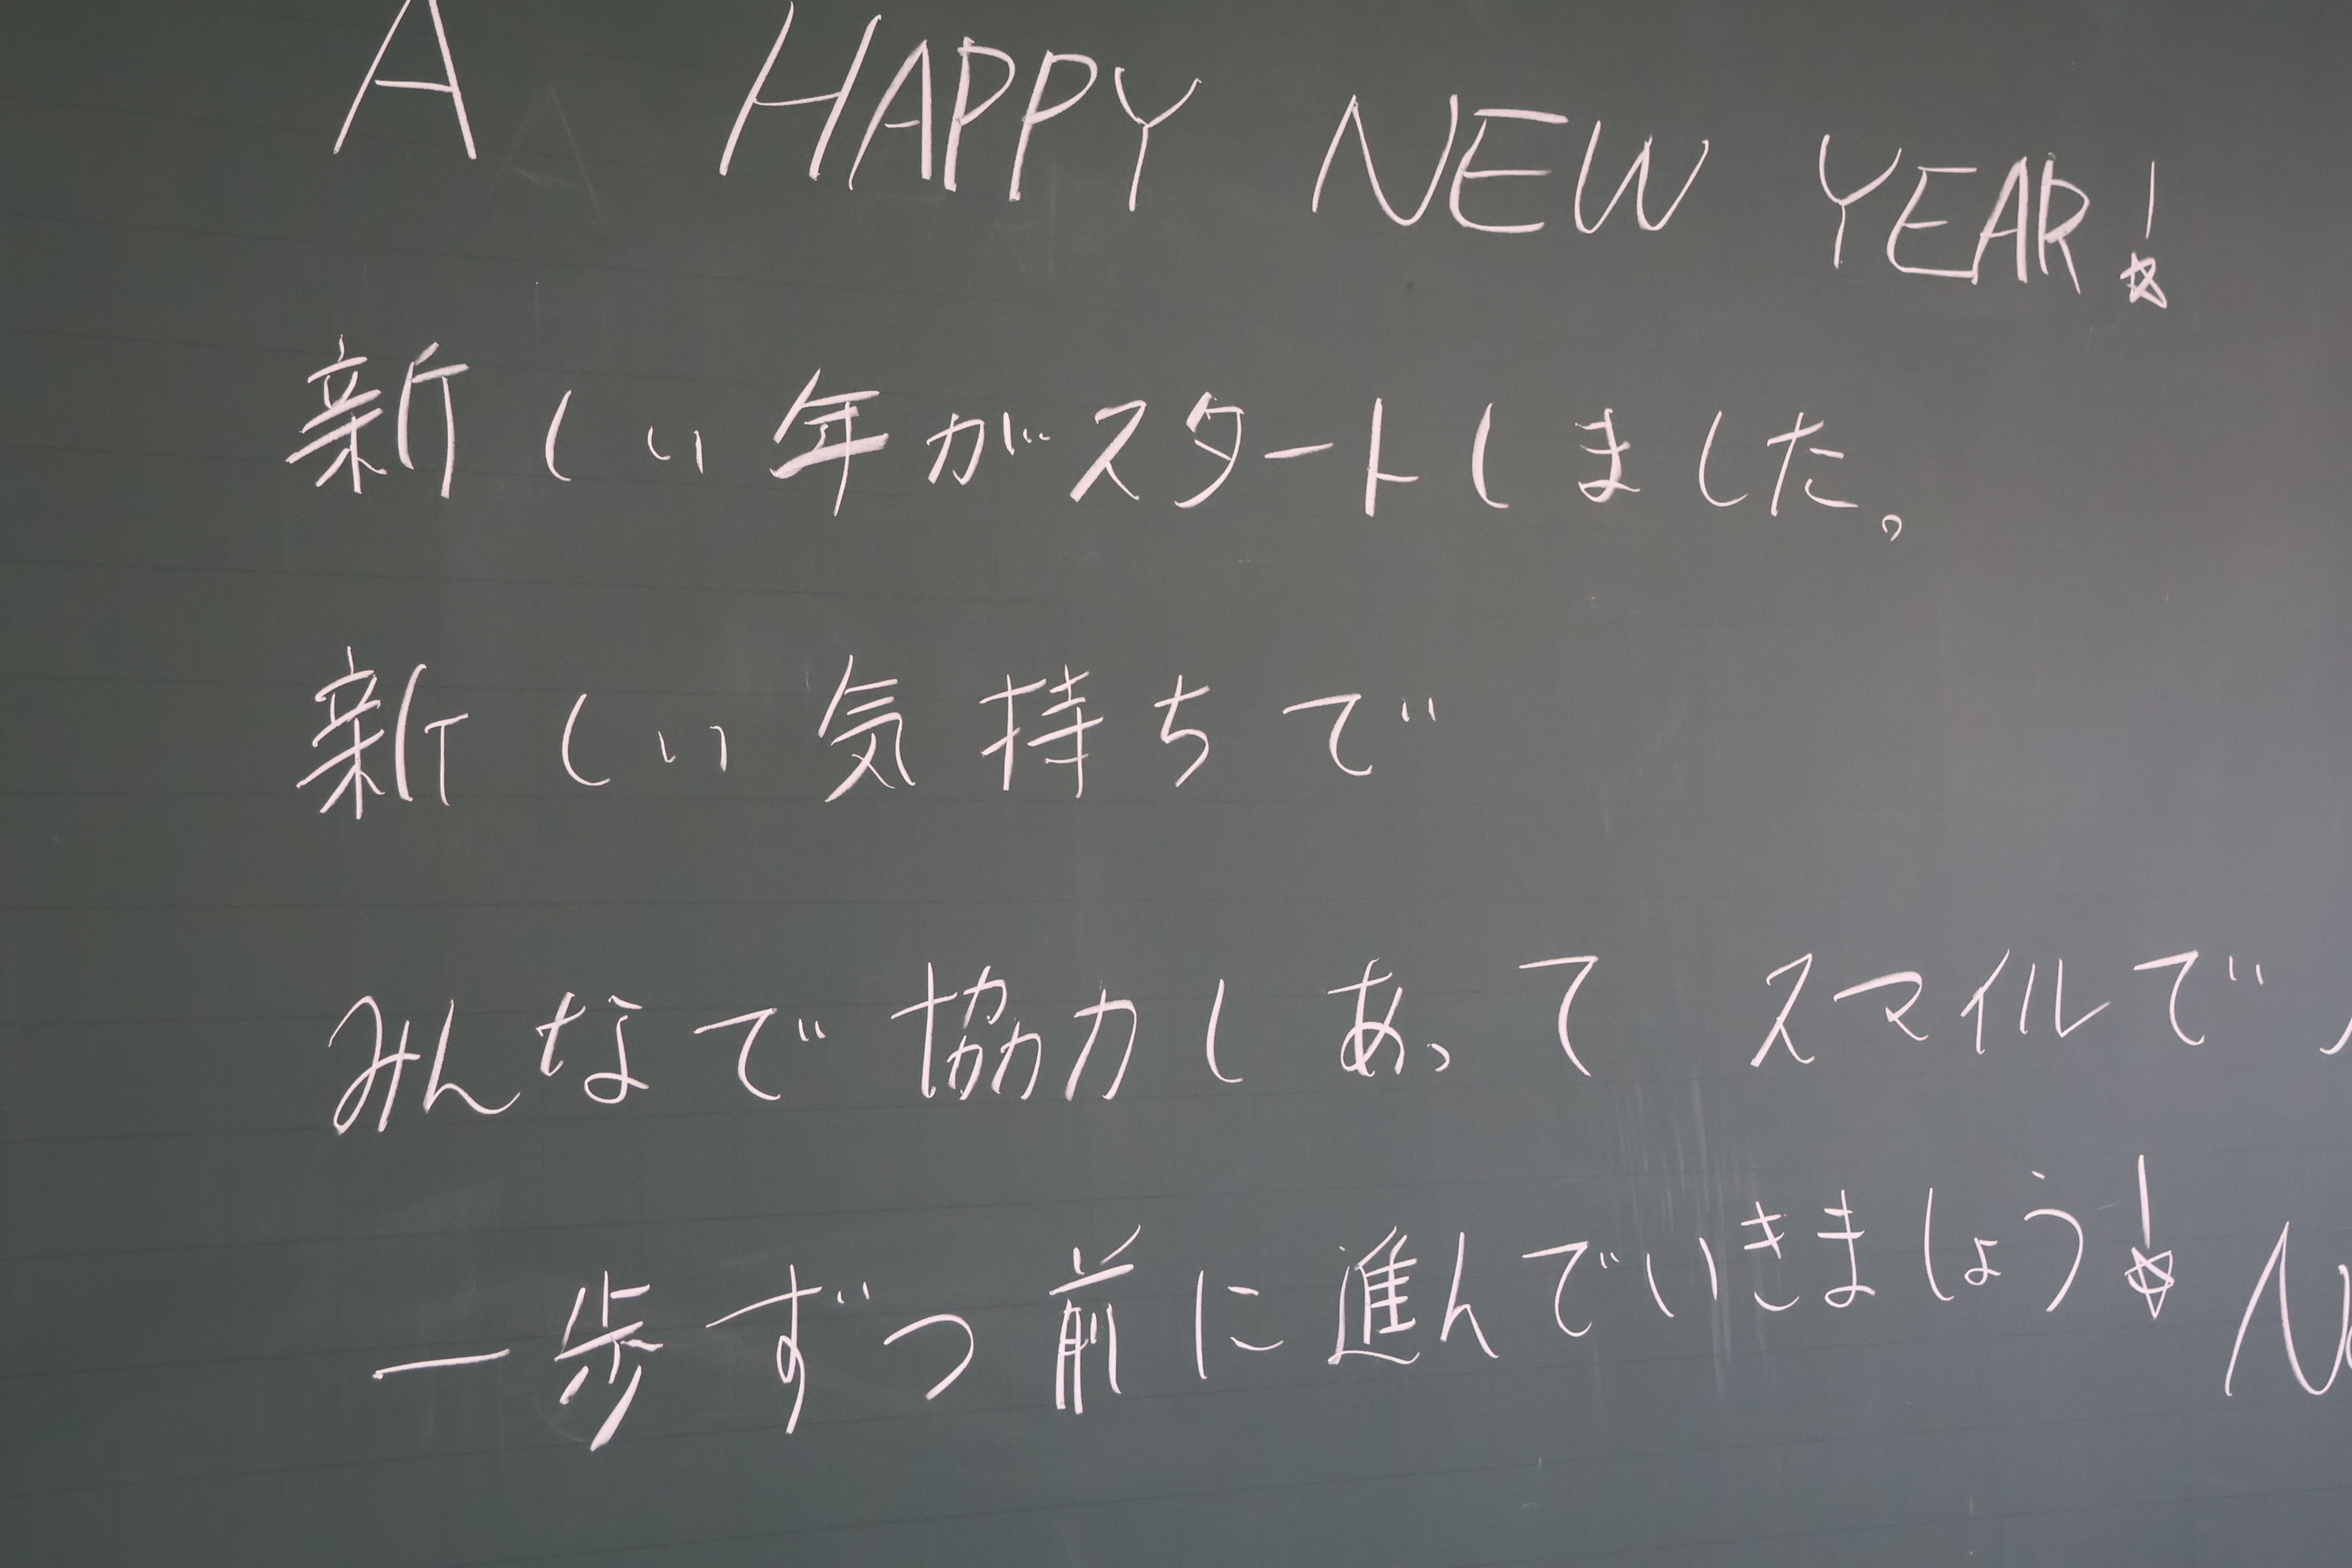 A HAPPY NEW YEAR!
新しい年がスタートしました。
新しい気持ちで
みんなで協力しあって スマイルで
一歩ずつ前に進んでいきましょう!